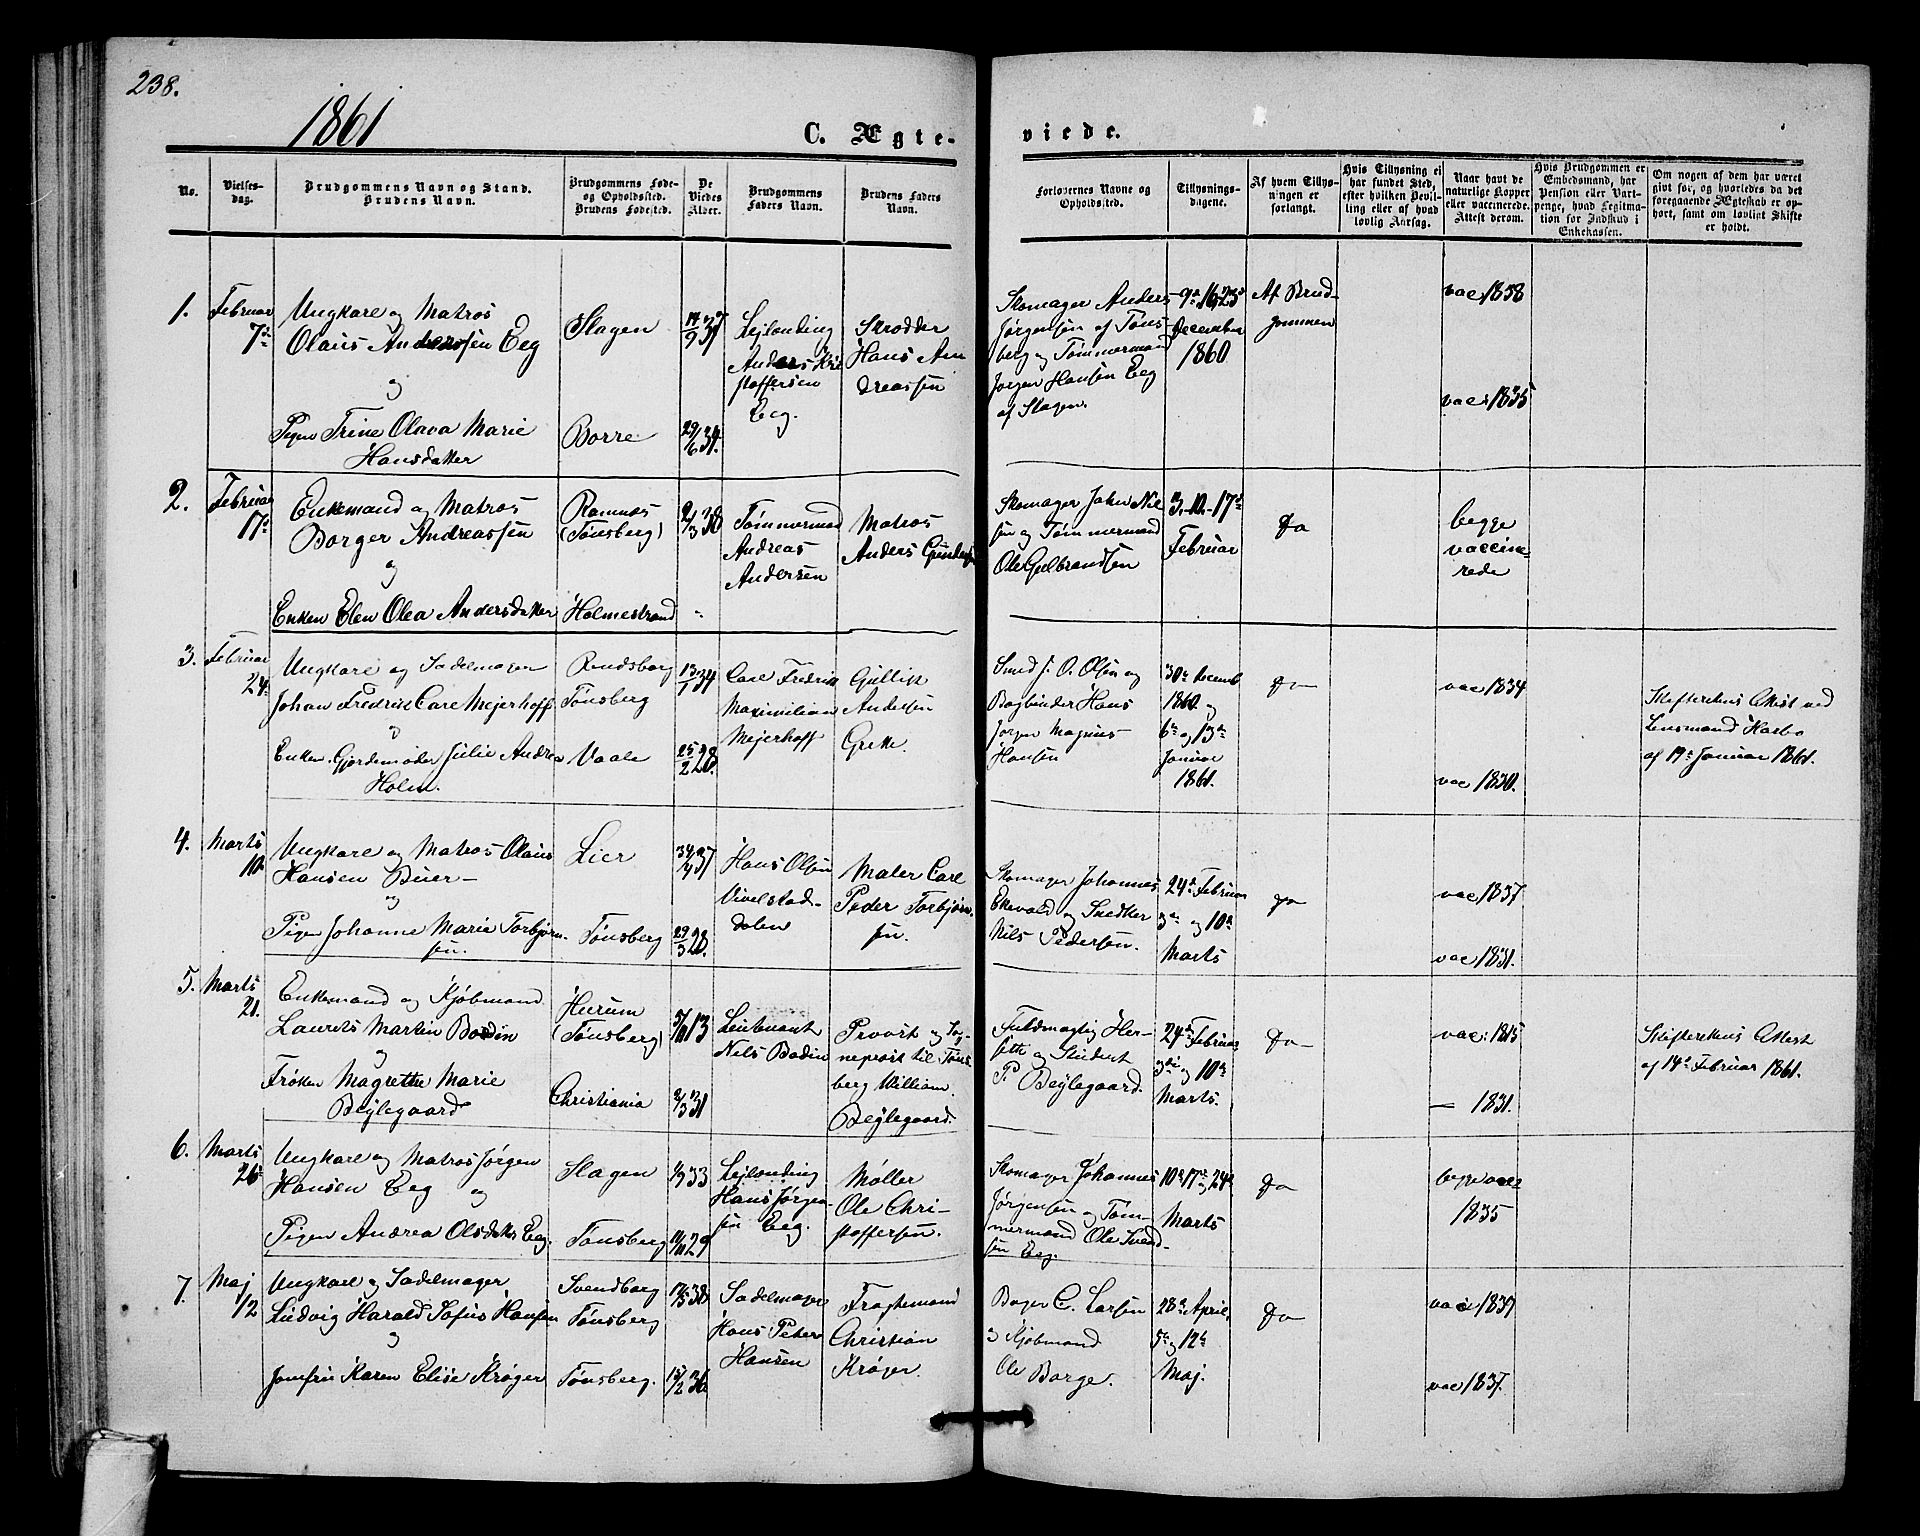 238.
1861
C. Ægte-
viede.
No.
Vielses-
dag.
Brudgommens Navn og Stand.
Brudens Navn.
Brudgommens Føde-
og Opholdssted.
Brudens Fødested.
De
Viedes
Alder.
Brudgommens
Faders Navn.
Brudens Faders
Navn.
Forlovernes Navne og
Opholdssted.
Tillysnings-
dagene.
Af hvem Tillys-
ningen er
forlangt.
Hvis Tillysning ei
har fundet Sted,
efter hvilken Bevil-
ling eller af hvad
lovlig Aarsag.
Naar havt de
naturlige Kopper
eller vaccinerede.
Attest derom.
Hvis Brudgommen er
Embedsmand, har
Pension eller Vart-
penge, hvad Legitima-
tion for Indskud i
Enkekassen.
Om nogen af dem har været
gift før, og hvorledes da det
foregaaende Ægteskab er op-
hørt, samt om lovligt Skifte
er holdt.
1.
Februar
7de
Ungkarl og Matros
Olaus Anderssen Eeg
og
Pigen Trine Olava Marie
Hansdatter
Slagen
Borre
29/6 34.
Lejlending
Anders Kri
stoffersen
Eeg.
Skrædder
Hans An
dreassen
Skomager Anders
Jørgensen af Tøns-
berg og Tømmermand
Jørgen Hansen Eeg
af Slagen.
9de 16 23de
December
1860
Af Brud-
gommen
vac 1858
vac 1835
2.
Februar
17de
Enkemand og Matros
Borger Andreassen
og
Enken Elen Olea Andersdatter
Ramnæs
(Tønsberg)
Holmestrand
Tømmermand
Andreas
Andersen
Matros
Anders Gunders
Skomager John Nil
sen og Tømmermand
Ole Gulbrandsen
3.-10.-17de
Februar
Do
begge
vaccine-
rede
3.
Februar
24.
Ungkarl og Sadelmager
Johan Fredrik Carl Mejerhoff
og
Enken Gjordemoder Julie Andrea
Holm.
Rendsborg
Tønsberg
Vaale
13/1 34
25/2 28.
Carl Fredrik
Maximilian
Mejerhoff
Gullik
Andersen
Grette.
Smed J. O. Olsen og
Bogbinder Hans
Jørgen Magnus
Hansen
30te Decemb
1860 og
6te og 13de
Januar
1861.
Do
vac 1834
vac 1830.
Skifterettens Attest ved
Lensmand Hasbo
af 17de Januar 1861.
4.
Marts
10.
Ungkarl og Matros Olaus
Hansen Buer
og
Pigen Johanne Marie Torbjørn-
sen.
Lier
Tønsberg
29/3 28.
Hans Olsen
Vivelstad-
dalen
Maler Carl
Peder Torbjørn
sen.
Skomager Johannes
Ekevald og Snedker
Nils Pedersen.
24de Februar
3die og 10de
Marts
Do
vac 1837
vac 1831.
5.
Marts
21.
Enkemand og Kjøbmand
Laurets Martin Bodin
og
Frøken Magrethe Marie
Bejlegaard
Hurum
(Tønsberg)
Christiania
Lieutnant
Nils Bodin
Provst og Sog-
neprest til Tøns
berg William
Bejlegaard.
Fuldmægtig Her-
seth og Student
P. Bejlegaard.
24de Februar
3die og 10de
Marts.
Do
vac: 1815
— 1831.
Skifterettens Attest
af 14de Februar 1861.
6.
Marts
26
Ungkarl og Matros Jørgen
Hansen Eeg og
Pigen Andrea Olsdatter Eeg.
Slagen
Tønsberg
Lejlending
Hans Jørgen
sen Eeg.
Møller
Ole Chri-
stoffersen.
Skomager Johannes
Jørgensen og Tøm-
mermand Ole Svend-
sen Eeg.
10de 17de og 24de
Marts
Do
begge vacc
1835
7.
Maj
12
Ungkarl og Sadelmager
Ludvig Harald Sofus Hansen
og
Jomfru Karen Elise Krøger
Svendborg
Tønsberg
Tønsberg.
17/5 38
15/2 36
Sadelmager
Hans Peter
Hansen
Fragtemand
Christian
Krøger.
Bager C. Larsen
og Kjøbmand
Ole Borge.
28de April,
5te og 12te
Maj.
Do
vac 1839
vac 1837.